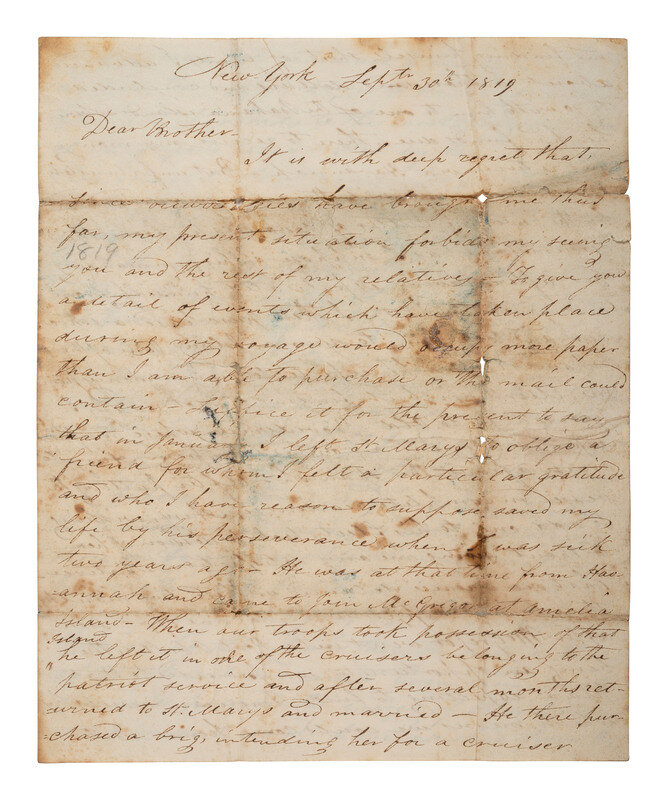 New York Septr 30th 1819
Dear Brother
It is with deep regret that,
since vicissities have brought me thus
far, my present situation forbids my seeing
1819
you and the rest of my relatives - To give you
a detail of events which have taken place
during my voyage would occupy more paper
than I am able to purchase or the mail could
contain - Suffice it for the present to say
that in I left St Marys to oblige a
friend for whom I felt a particular gratitude
and who I have reason to suppose saved my
life by his perseverance when I was sick
two years ago - He was at that time from Hav-
annah and came to join McGregor at Amelia
Island - When our troops took possession of that
Island
he left it in one of the cruisers belonging to the
patriot service and after several months ret-
urned to St Marys and married - He there pur-
chased a brig, intending her for a cruiser